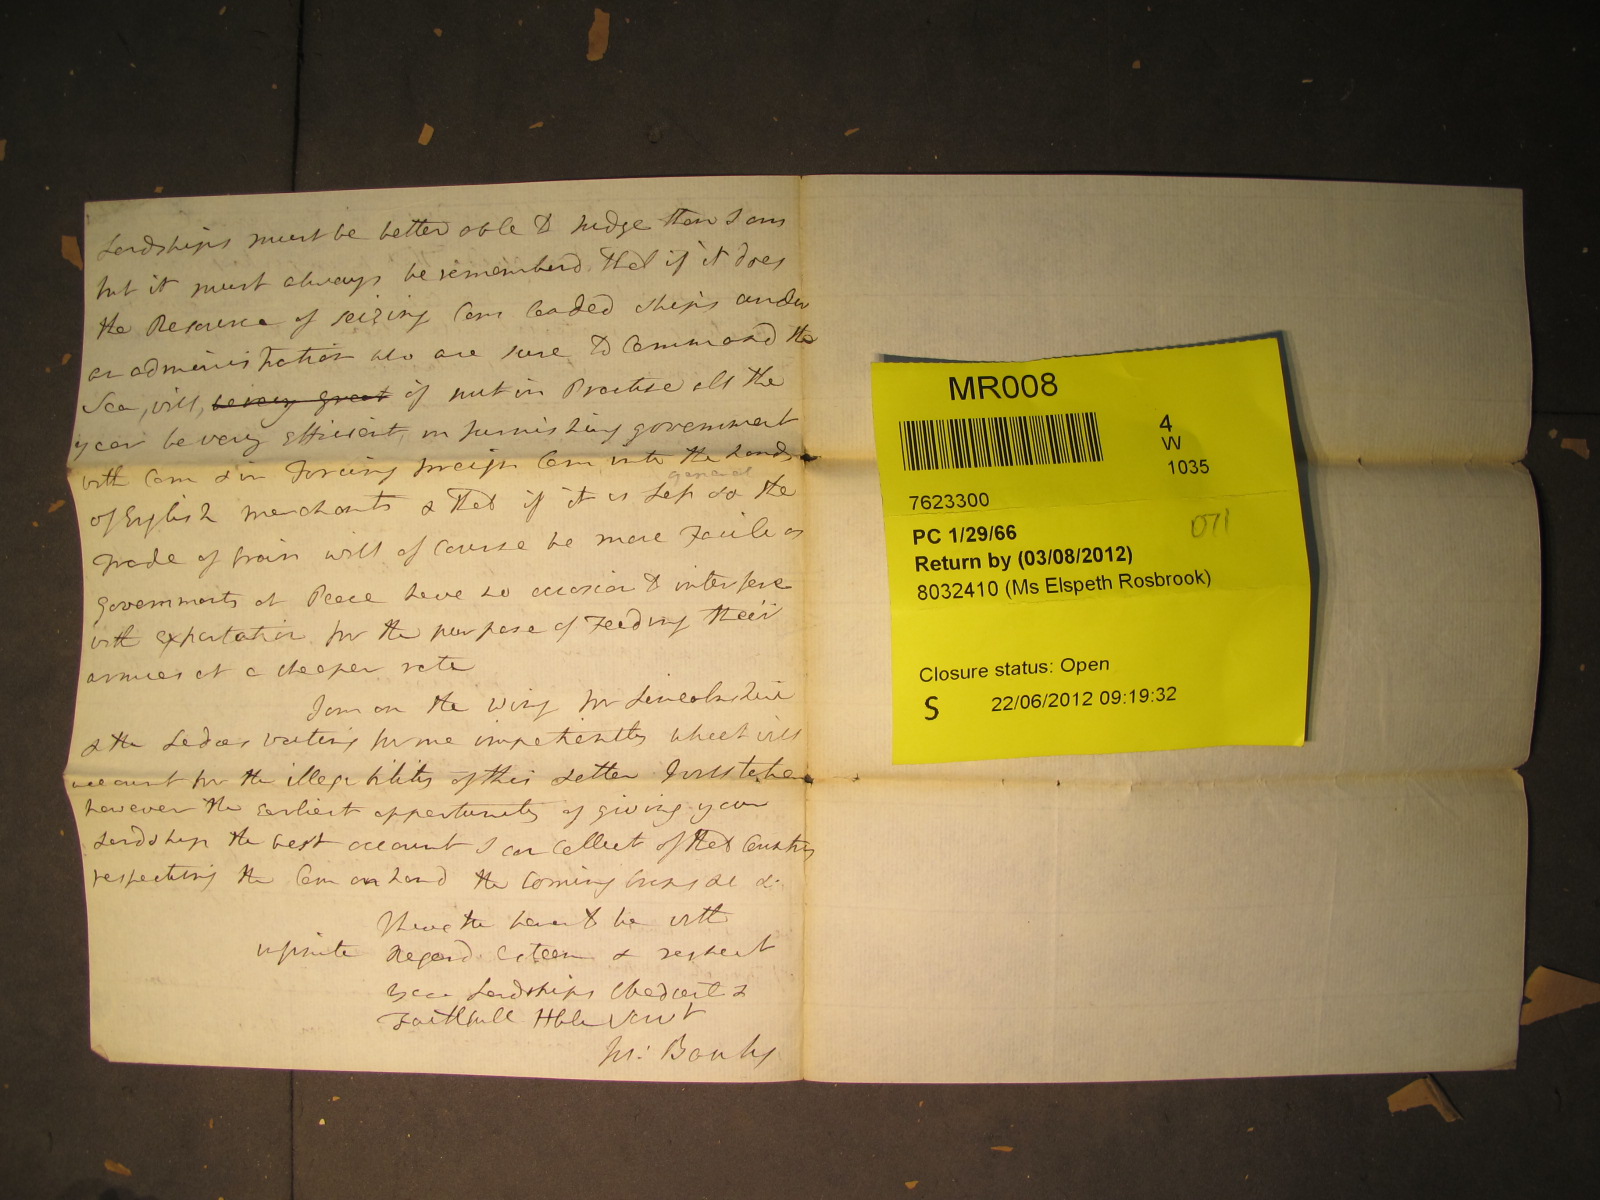 Lordships must be better able to Judge than I am
but it must always be rememberd that if it does
the Resource of seizing Corn loaded ships under
an administration who are sure to Command the
Sea, will, be very great if put in Practise all the
year be very efficient, in furnishing government
with Corn & in Forcing foreign Corn into the hands
general
of English merchants & that if it is Less so the
Trade of grain will of Course be more Facile as
governments at Peace have no occasion to interfere
with exportation for the purpose of Feeding their
armies at a cheaper rate
I am on the wing for Lincolnshire
& the Ladies waiting for me impatiently which will
account for the illegibility of this Letter I will take
however the Earliest opportunity of giving your
Lordship the best account I can Collect of that Country
respecting the Corn on hand the Coming Crops &c &c
I have the honor to be with
infinite Regard Esteem & respect
your Lordships Obedient &
Faithfull Hble Servt
Jos: Banks
MR008
4
W
1035
7623300
PC 1/29/66
071
Return by (03/08/2012)
8032410 (Ms Elspeth Rosbrook)
Closure status: Open
S 22/06/2012 09:19:32